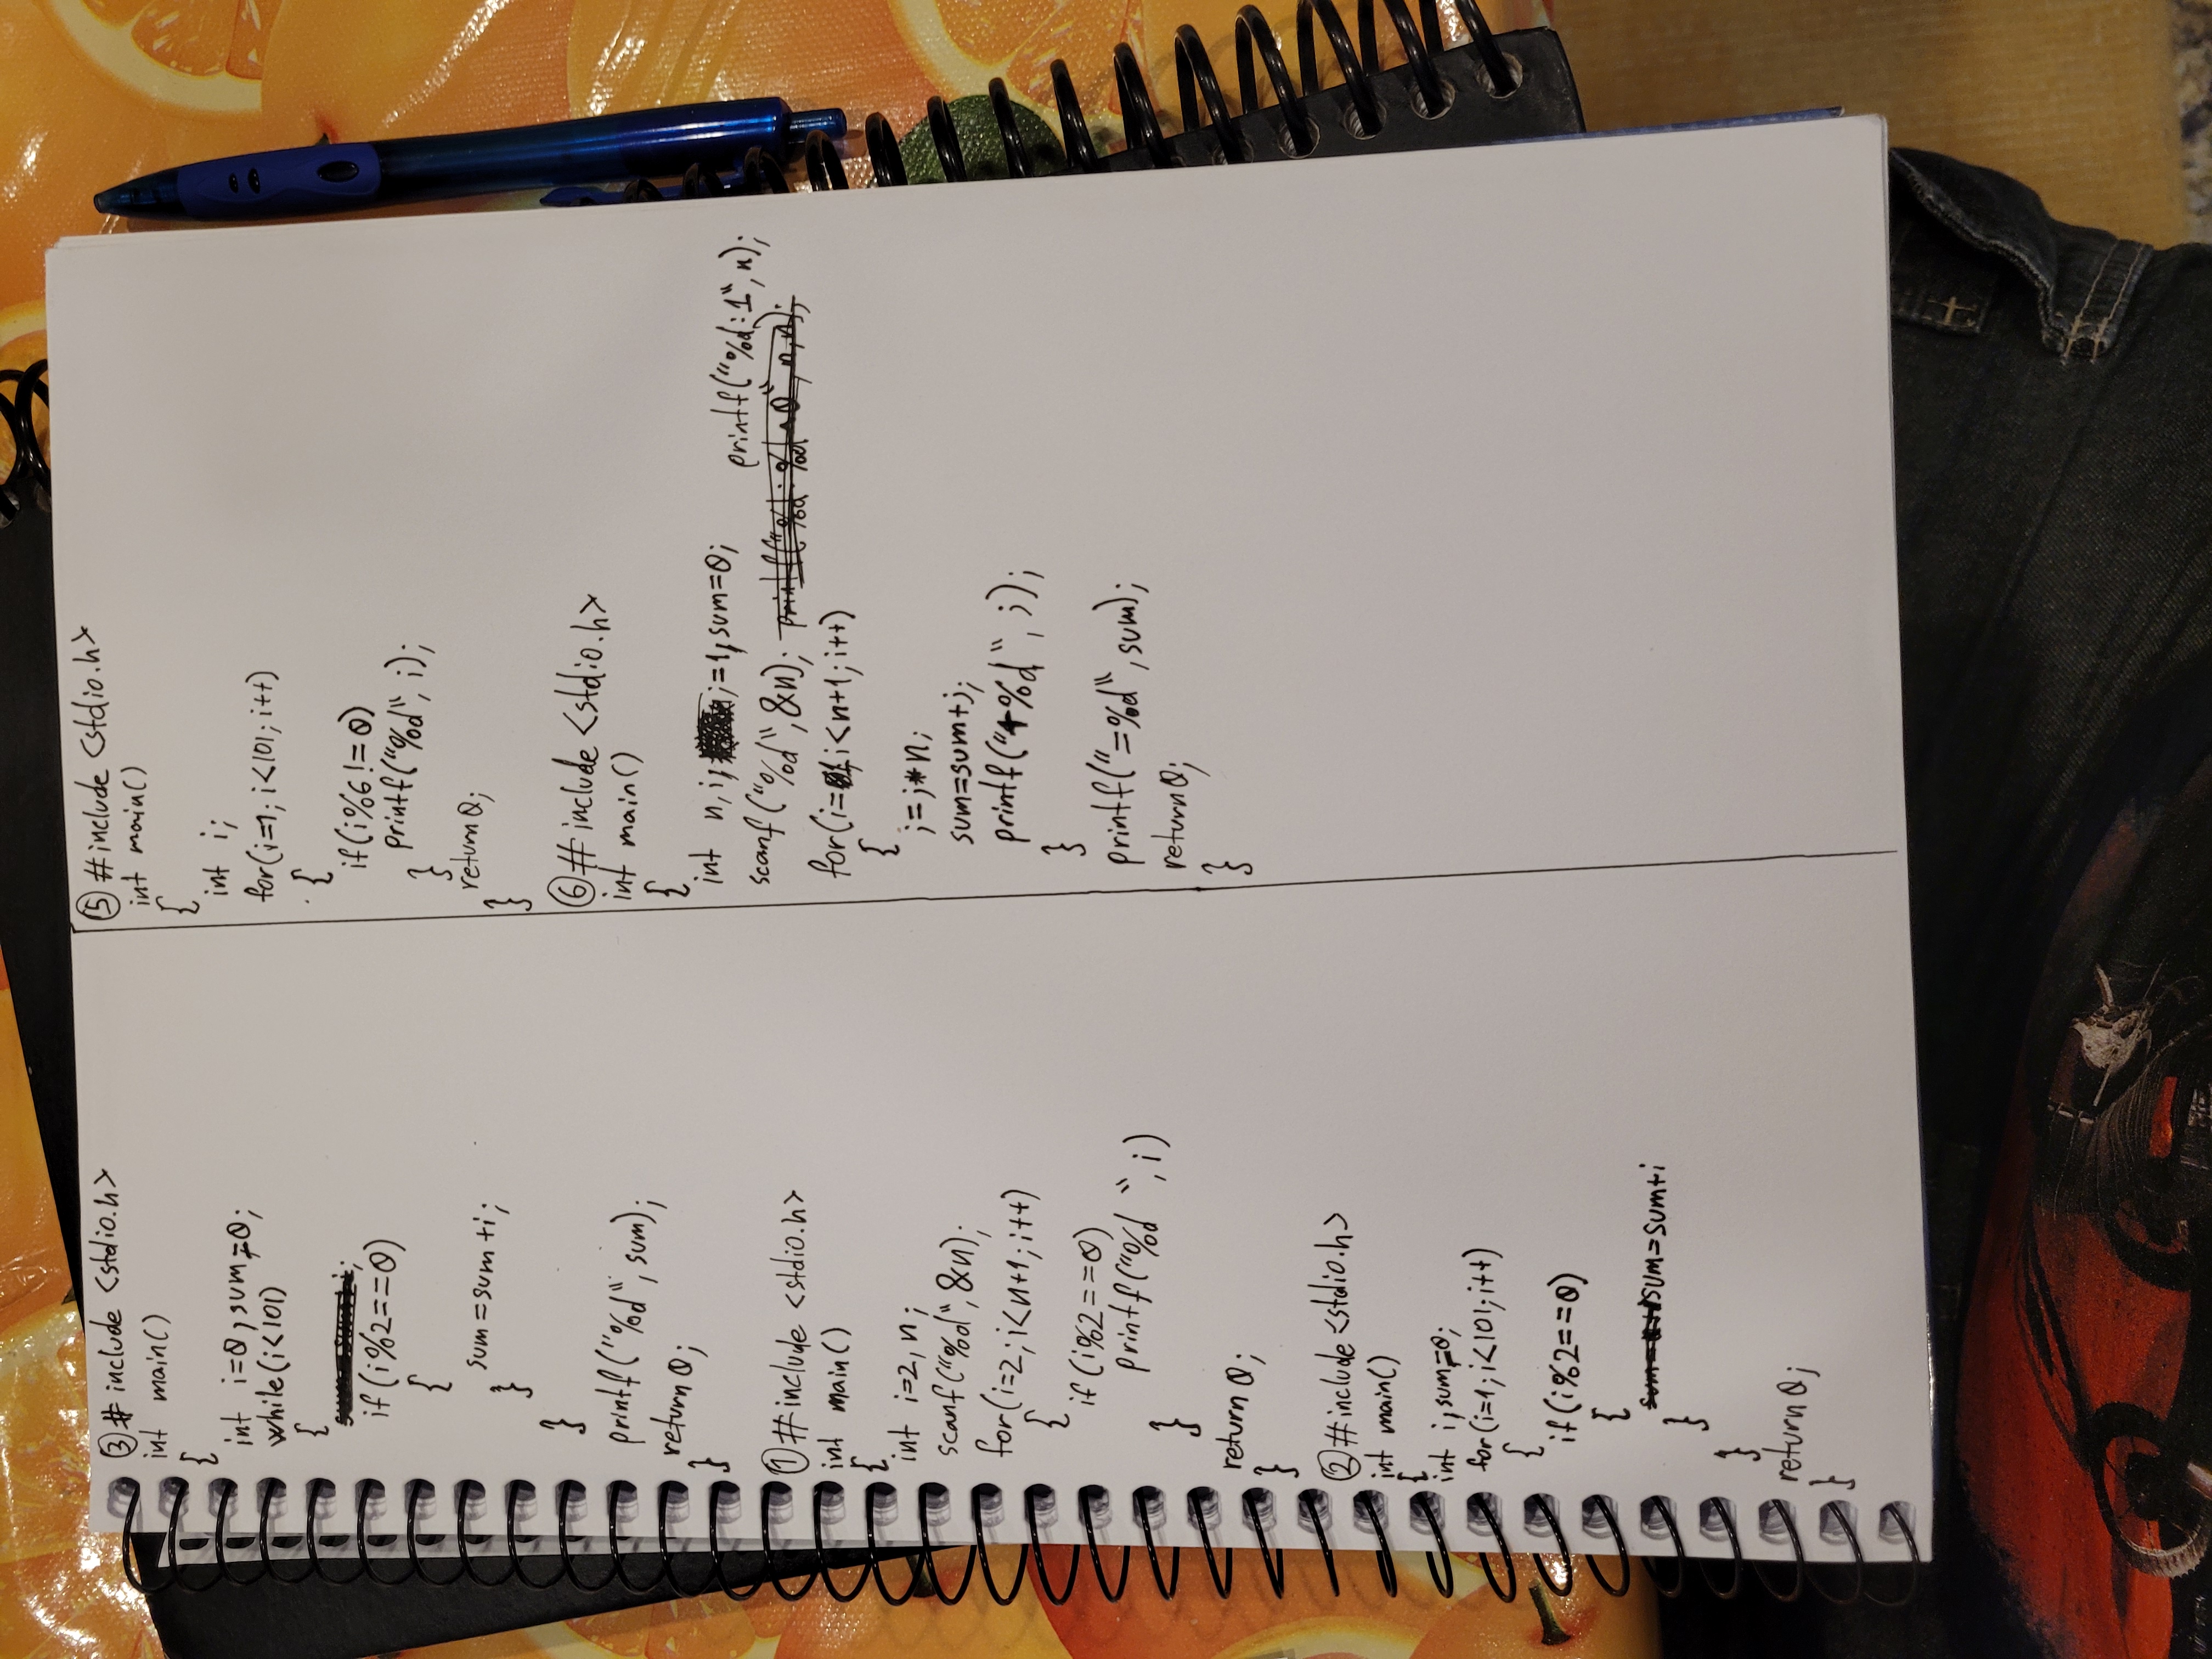 ③ # include <stdio.h>
int main()
{
int i=0, sum=0;
while(i<101)
{
sum=sum+i;
if(i%2==0)
{
sum=sum+i;
}
}
printf("%d", sum);
return 0;
}
① #include <stdio.h>
int main()
{
int i=2, n;
scanf("%d", &n);
for(i=2; i<n+1; i++)
{
if(i%2==0)
printf("%d ", i)
}
return 0;
}
② #include <stdio.h>
int main()
{
int i, sum=0;
for(i=1; i<101; i++)
{
if(i%2==0)
{
sum=sum+i
}
}
return 0;
}
⑤ #include <stdio.h>
int main()
{
int i;
for(i=1; i<101; i++)
{
if(i%6!=0)
printf("%d", i);
}
return 0;
}
⑥ # include <stdio.h>
int main()
{
int n, i, j=1, sum=0;
printf("%d:1", n);
scanf("%d", &n);
for(i=1; i<n+1; i++)
{
j=j*n;
sum=sum+j;
printf("+%d ", j);
}
printf("=%d", sum);
return 0;
}